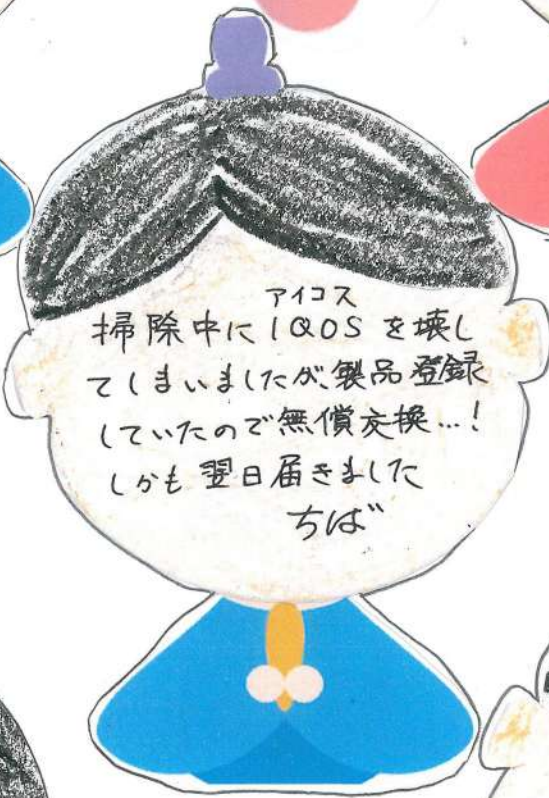 アイコス
掃除中にIQOSを壊し
てしまいましたが、製品登録
していたので無償交換…!
しかも翌日届きました
ちば